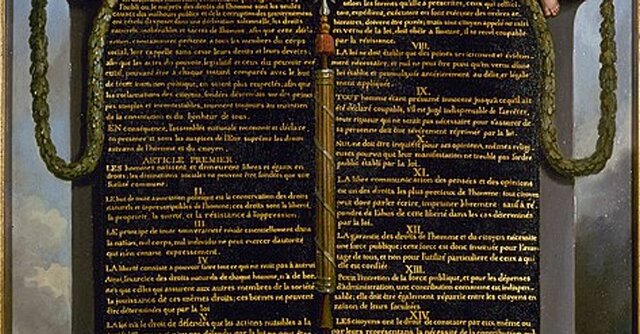 l'oubli ou le mépris des droits de l'homme sont les seules
causes des malheurs publics et de la corruption des gouvernemens
ont résolu d'exposer dans une déclaration solemnelle, les droits
naturels, inaliénables et sacrés de l'homme, afin que cette décla-
ration, constamment présente a tous les membres du corps
social, leur rappelle sans cesse leurs droits et leurs devoirs,
afin que les actes du pouvoir législatif et ceux du pouvoir exé-
cutif, pouvant être à chaque instant comparés avec le but
de toute institution politique, en soient plus respectés, afin que
les réclamations des citoyens, fondées désormais sur des princi-
pes simples et incontestables, tournent toujours au maintien
de la constitution et du bonheur de tous.
EN conséquence, l'assemblée nationale reconnoit et déclare
en présence et sous les auspices de l'Etre suprême les droits
suivans de l'homme et du citoyen.
ARTICLE PREMIER.
LES hommes naissent et demeurent libres et égaux en
droits; les distinctions sociales ne peuvent être fondées que sur
l'utilité commune.
II.
LE but de toute association politique est la conservation des droits
naturels et imprescriptibles de l'homme; ces droits sont la liberté,
la propriété, la sureté, et la résistance à l'oppression.
III.
LE principe de toute souveraineté réside essentiellement dans
la nation, nul corps, nul individu ne peut exercer d'autorité
qui n'en émane expressément.
IV.
LA liberté consiste à pouvoir faire tout ce qui ne nuit pas à autrui
Ainsi, l'exercice des droits naturels de chaque homme, n'a de bor-
nes que celles qui assurent aux autres membres de la société
la jouissance de ces mêmes droits; ces bornes ne peuvent
être déterminées que par la loi
V.
LA loi n'a le droit de défendre que les actions nuisibles à la
selon les formes qu'elle a prescrites, ceux qui sollici-
tent, expédient, exécutent ou font exécuter des ordres ar-
bitraires, doivent être punis; mais tout citoyen appelé ou saisi
en vertu de la loi, doit obéir a l'instant, il se rend coupable
par la résistance.
VIII.
LA loi ne doit établir que des peines strictement et évidem-
ment nécessaire, et nul ne peut être puni qu'en vertu d'une
loi établie et promulguée antérieurement au délit, et légale-
ment appliquée.
IX.
TOUT homme étant présumé innocent jusqu'à ce qu'il ait
été déclaré coupable, s'il est jugé indispensable de l'arrêter,
toute rigueur qui ne serait pas nécessaire pour s'assurer de
sa personne doit être sévèrement réprimée par la loi.
X.
NUL ne doit être inquiété pour ses opinions, mêmes religi-
euses pourvu que leur manifestation ne trouble pas l'ordre
public établi par la loi.
XI.
LA libre communication des pensées et des opinions
est un des droits les plus précieux de l'homme; tout citoyen
peut donc parler, écrire, imprimer librement: sauf à ré-
pondre de l'abus de cette liberté dans les cas déterminés
par la loi.
XII.
LA garantie des droits de l'homme et du citoyen nécessite
une force publique; cette force est donc instituée pour l'avan-
tage de tous, et non pour l'utilité particulière de ceux à qui
elle est confiée.
XIII.
POUR l'entretien de la force publique, et pour les dépenses
d'administration, une contribution commune est indispen-
sable; elle doit être également répartie entre les citoyens en
raison de leurs facultées.
XIV
LES citoyens ont le droit de constater par eux même ou
par leurs représentants, la nécessité de la contribution